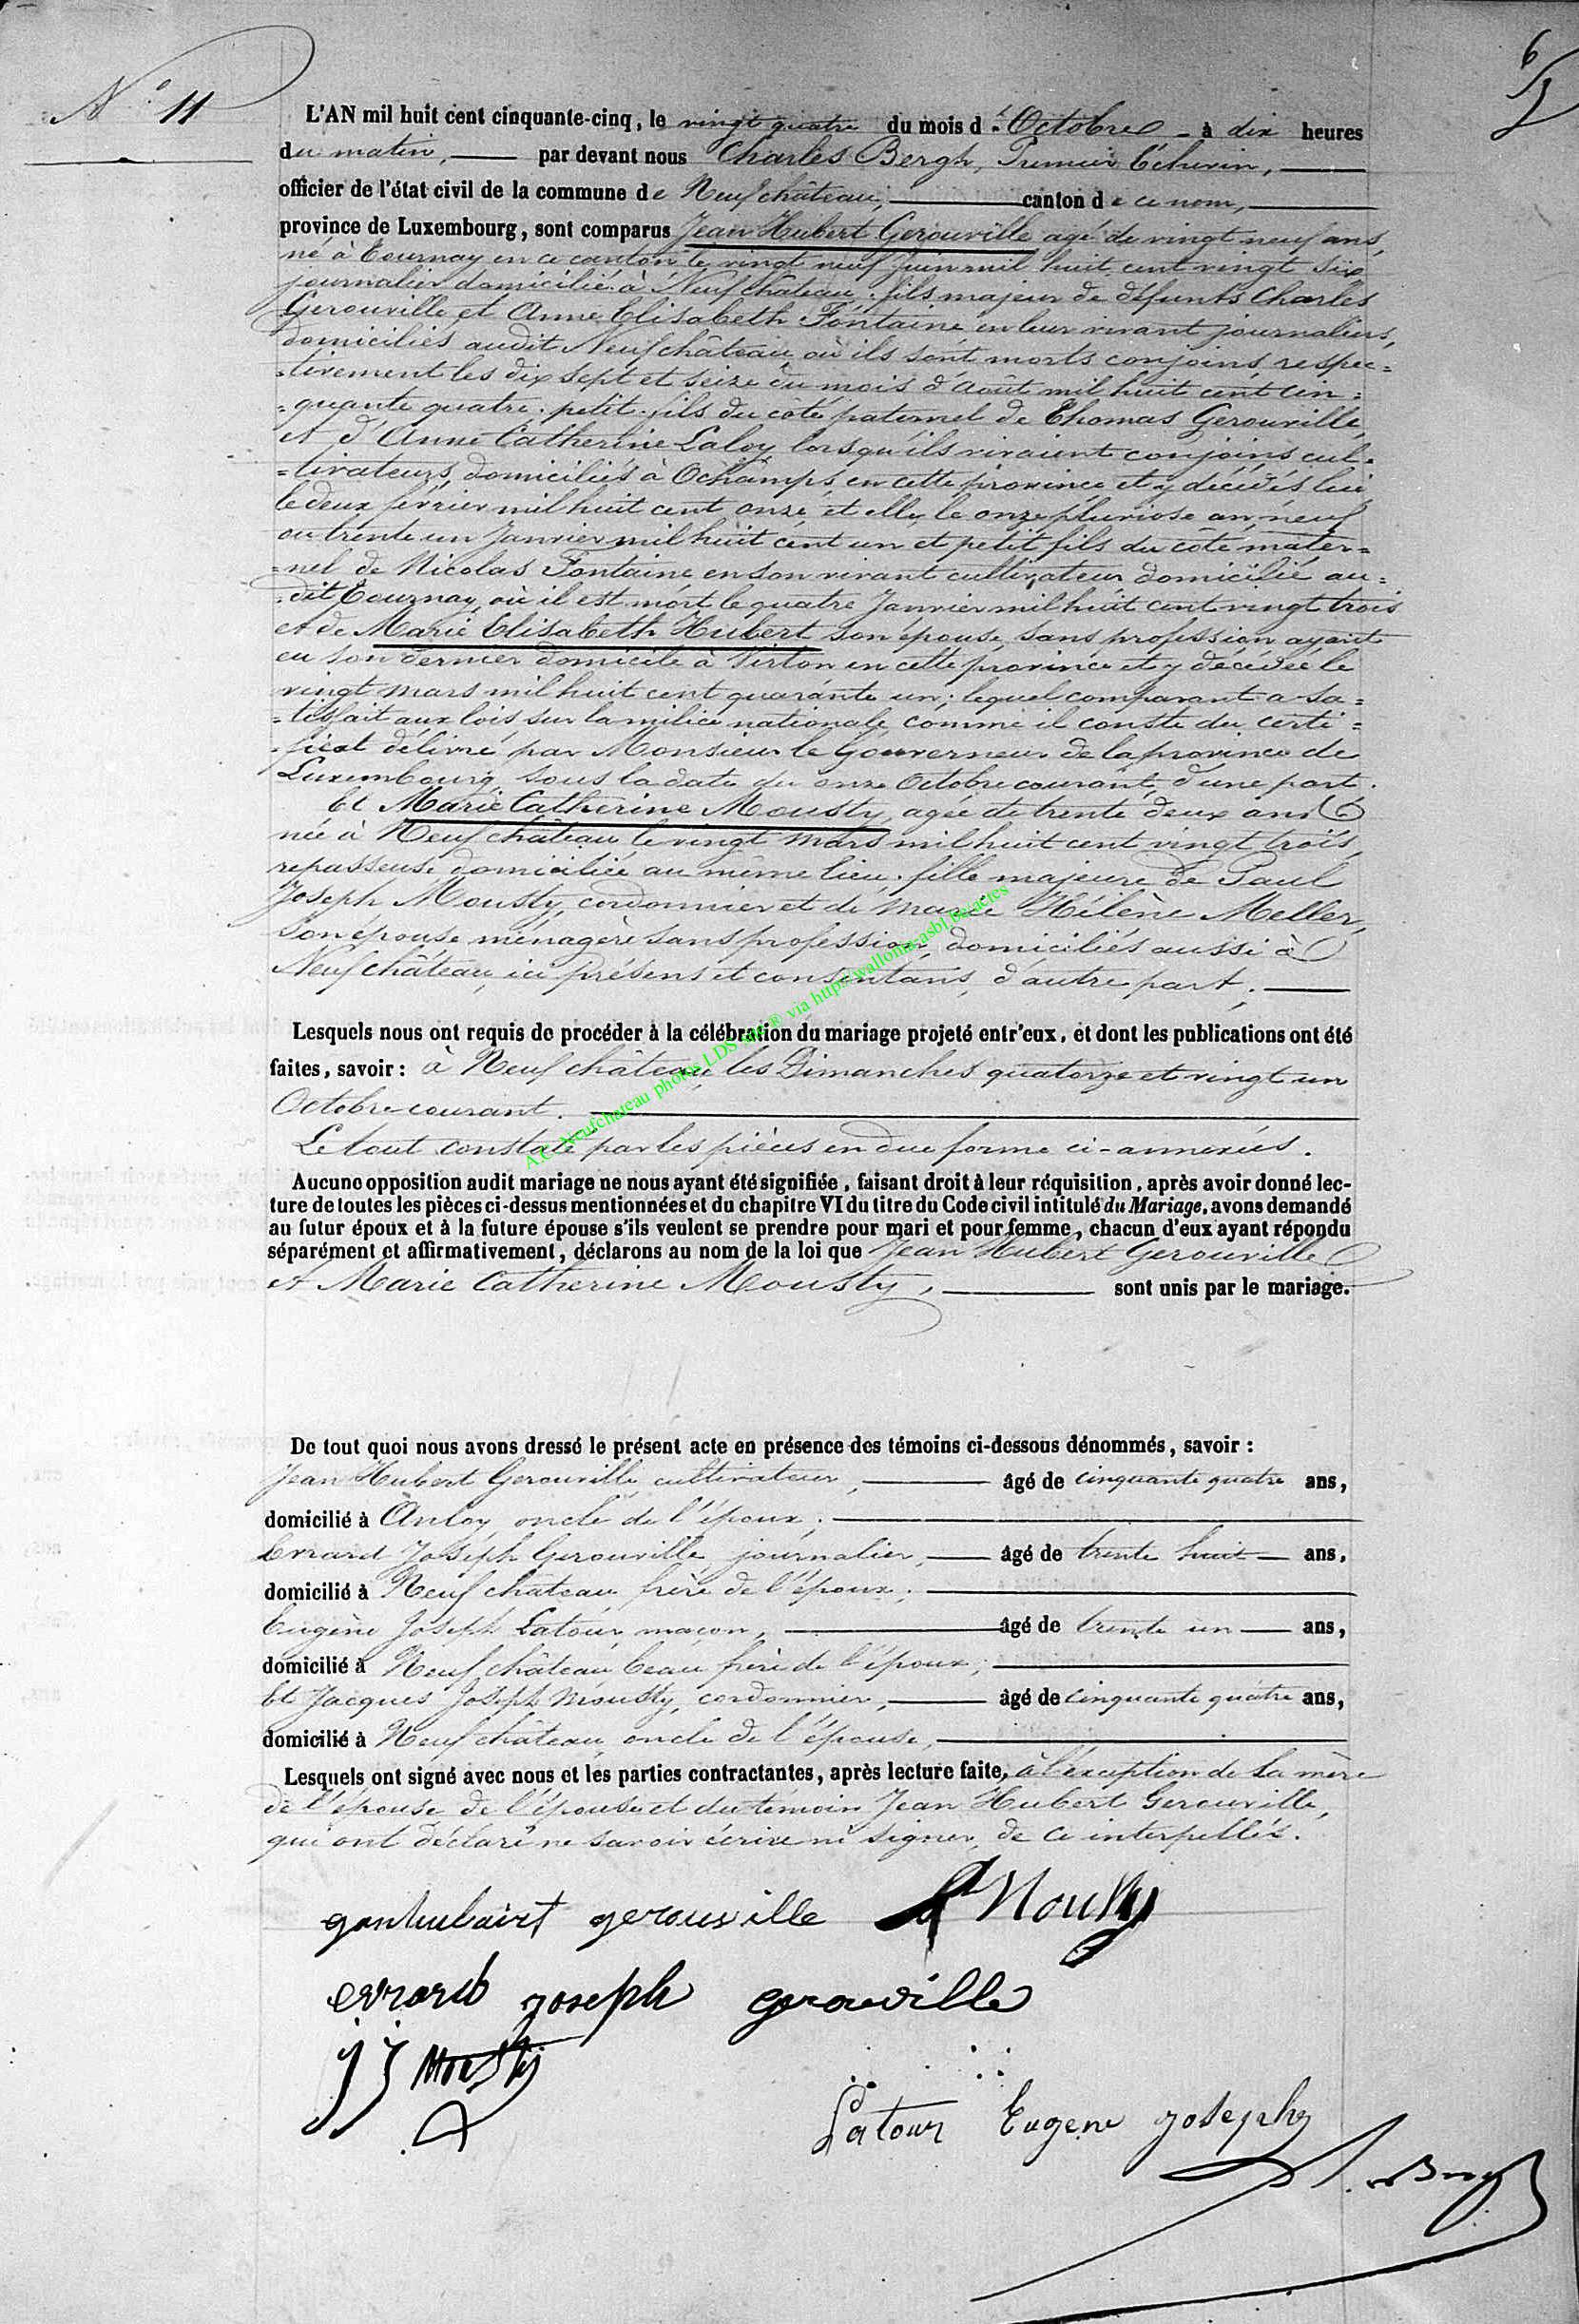 N.° 11
6
L'AN mil huit cent cinquante-cinq, le vingt quatre du mois d'Octobre - à dix heures
du matin, par devant nous Charles Bergh, Premier Echevin,
officier de l'état civil de la commune de Neufchâteau, canton de ce nom,
province de Luxembourg, sont comparus Jean Hubert Gerouville agé de vingt neuf ans,
né à Tournay en ce canton le vingt neuf juin mil huit cent vingt six
journalier domicilié à Neufchâteau; fils majeur de défunts Charles
Gerouville et Anne Elisabeth Fontaine en leur vivant journaliers,
domiciliés audit Neufchâteau, où ils sont morts conjoins, respec=
=tivement les dix sept et seize du mois d'Août mil huit cent cin=
=quante quatre. petit-fils du côté paternel de Thomas Gerouville,
et d'Anne Catherine Laloy, lorsqu'ils vivaient conjoins cul=
=tivateurs, domiciliés à Ochamps, en cette province et y décédés lui
le deux février mil huit cent onze, et elle, le onze pluviose an neuf
ou trente un Janvier mil huit cent un et petit fils du côté mater=
=nel de Nicolas Fontaine, en son vivant cultivateur domicilié au=
=dit Tournay, où il est mort le quatre Janvier mil huit cent vingt trois
et de Marie Elisabeth Hubert son épouse, sans profession ayant
eu son dernier domicile à Virton en cette province et y décédée le
vingt mars mil huit cent quarante un; lequel comparant a sa=
=tisfait aux lois sur la milice nationale, comme il conste du certi=
=ficat délivré par Monsieur le Gouverneur de la province de
Luxembourg, sous la date du onze Octobre courant, d'une part.
Et Marie Catherine Mousty, agée de trente deux ans
née à Neufchâteau, le vingt Mars mil huit cent vingt trois,
repasseuse, domiciliée au même lieu; fille majeure de Paul
Joseph Mousty, cordonnier et de Marie Hélène Meller,
son épouse ménagère sans profession, domiciliés aussi à
Neufchâteau, ici présens et consentans, d'autre part;
Lesquels nous ont requis de procéder à la célébration du mariage projeté entr'eux, et dont les publications ont été
faites, savoir: à Neufchâteau, les Dimanches quatorze et vingt un
Octobre courant.
Le tout constaté par les pièces en due forme ci-annexées.
Aucune opposition audit mariage ne nous ayant été signifiée, faisant droit à leur réquisition, après avoir donné lec-
ture de toutes les pièces ci-dessus mentionnées et du chapitre VI du titre du Code civil intitulé du Mariage, avons demandé
au futur époux et à la future épouse s'ils veulent se prendre pour mari et pour femme, chacun d'eux ayant répondu
séparément et affirmativement, déclarons au nom de la loi que Jean Hubert Gerouville
et Marie Catherine Mousty, sont unis par le mariage.
De tout quoi nous avons dressé le présent acte en présence des témoins ci-dessous dénommés, savoir:
Jean Hubert Gerouville, cultivateur, âgé de cinquante quatre ans,
domicilié à Anloy, oncle de l'époux;
Evrard Joseph Gerouville, journalier, âgé de trente huit ans,
domicilié à Neufchâteau, frère de l'époux;
Eugène Joseph Latour, maçon, âgé de trente un ans,
domicilié à Neufchâteau, beau frère de l'époux;
Et Jacques Joseph Mousty, cordonnier, âgé de cinquante quatre ans,
domicilié à Neufchâteau, oncle de l'épouse,
Lesquels ont signé avec nous et les parties contractantes, après lecture faite, à l'exception de la mère
de l'épouse de l'épouse et du témoin Jean Hubert Gerouville,
qui ont déclaré ne savoir écrire ni signer, de ce interpellés.
ganhubairt gerouville Mousty
evrard joseph gerouville
JJ Mousty
Latour Eugene joseph
Bergh
A.C. Neufchateau photos LDS via http://wallonia-asbl.be/actes